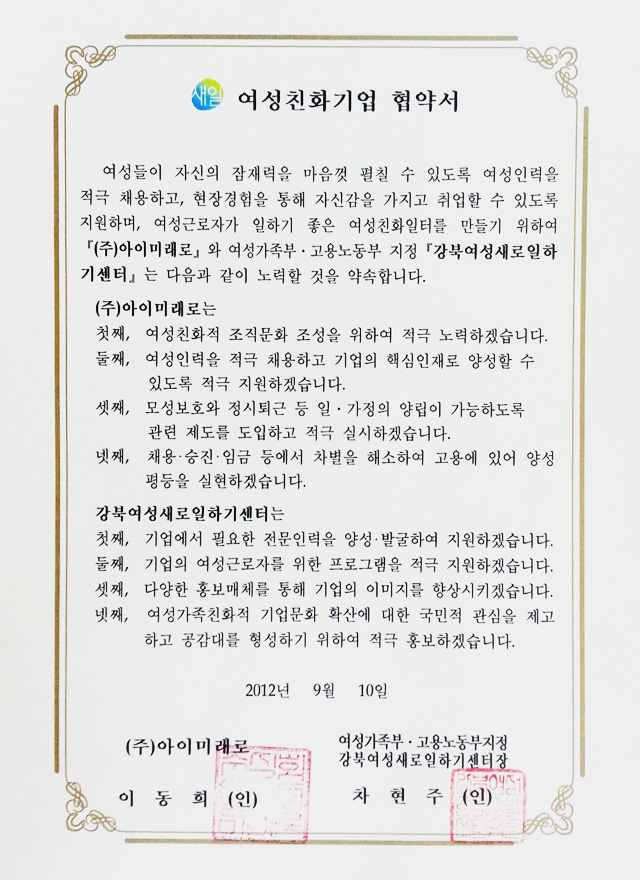 새일 여성친화기업 협약서
여성들이 자신의 잠재력을 마음껏 펼칠 수 있도록 여성인력을
적극 채용하고, 현장경험을 통해 자신감을 가지고 취업할 수 있도록
지원하며, 여성근로자가 일하기 좋은 여성친화일터를 만들기 위하여
『(주)아이미래로』와 여성가족부·고용노동부 지정『강북여성새로일하
기센터』는 다음과 같이 노력할 것을 약속합니다.
(주)아이미래로는
첫째, 여성친화적 조직문화 조성을 위하여 적극 노력하겠습니다.
둘째, 여성인력을 적극 채용하고 기업의 핵심인재로 양성할 수
있도록 적극 지원하겠습니다.
셋째, 모성보호와 정시퇴근 등 일·가정의 양립이 가능하도록
관련 제도를 도입하고 적극 실시하겠습니다.
넷째, 채용·승진·임금 등에서 차별을 해소하여 고용에 있어 양성
평등을 실현하겠습니다.
강북여성새로일하기센터는
첫째, 기업에서 필요한 전문인력을 양성·발굴하여 지원하겠습니다.
둘째, 기업의 여성근로자를 위한 프로그램을 적극 지원하겠습니다.
셋째, 다양한 홍보매체를 통해 기업의 이미지를 향상시키겠습니다.
넷째, 여성가족친화적 기업문화 확산에 대한 국민적 관심을 제고
하고 공감대를 형성하기 위하여 적극 홍보하겠습니다.
2012년 9월 10일
(주)아이미래로 여성가족부·고용노동부지정
강북여성새로일하기센터장
이 동 희 (인) 차 현 주 (인)